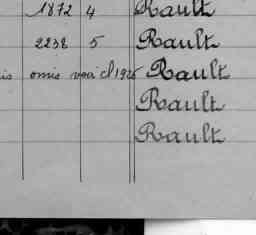 1872 4 Rault
2238 5 Rault
is omis voir cl 1926 Rault
Rault
Rault